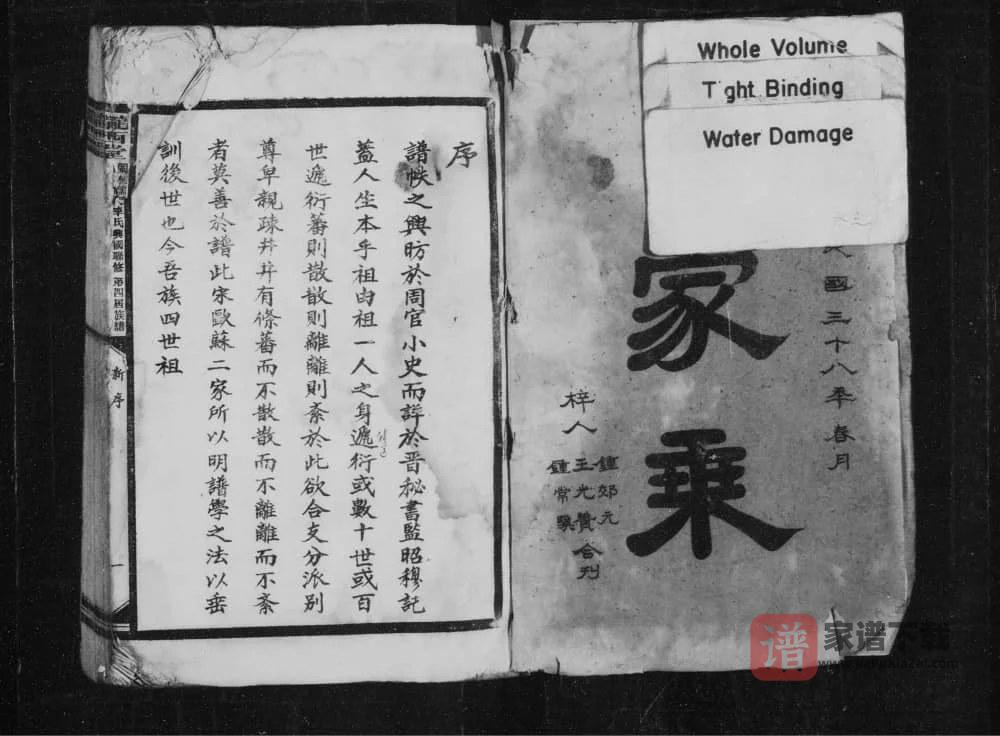 Whole Volume
Tight Binding
Water Damage
民國三十八年春月
家乘
梓人
鍾郊元
王光贊 合刋
鍾常興
序
譜帙之興昉於周官小史而詳於晋秘書監昭穆記
蓋人生本乎祖由祖一人之身遞衍或數十世或百
世遞衍蕃則散散則離離則紊於此欲合支分派別
尊卑親疎井井有條蕃而不散散而不離離而不紊
者莫善於譜此宋歐蘇二家所以明譜學之法以垂
訓後世也今吾族四世祖
隴西堂
李氏興國聯修 第四屆族譜
新序
一
谱
家谱下载